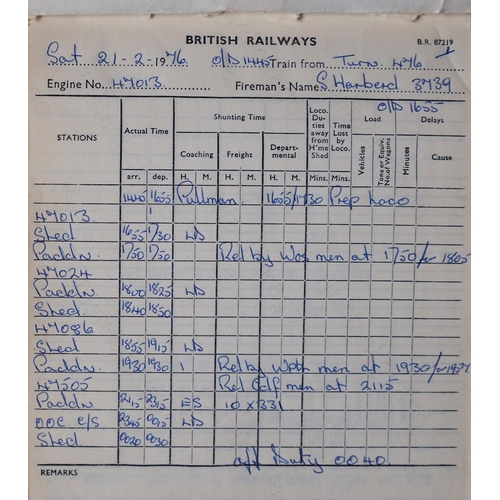 BRITISH RAILWAYS B.R. 87219
Sat 21-2-1976 O/D 1445 Train from Turn 476
Engine No. 47013 Fireman's Name S Harberd 3739
O/D 1655
STATIONS Actual Time Shunting Time Loco. Duties away from H'me Shed Time Lost by Loco. Load Delays
Coaching Freight Departmental Vehicles Tons or Equiv. No. of Wagons Minutes Cause
arr. dep. H. M. H. M. H. M. Mins. Mins.
1445 1655 Pullman 1655/1730 Prep Loco
47013
Shed 1655 1730 LD
Paddn 1750 1750 Rel by Wos men at 1750 for 1805
47024
Paddn 1800 1825 LD
Shed 1840 1850
47086
Shed 1855 1915 LD
Paddn 1930 1930 Rel by Wptn men at 1930 for
47505 Rel Cdf men at 2115
Paddn 2115 2315 ES 10 x 331
OOC C/S 2345 0015 LD
Shed 0020 0030
off Duty 0040.
REMARKS